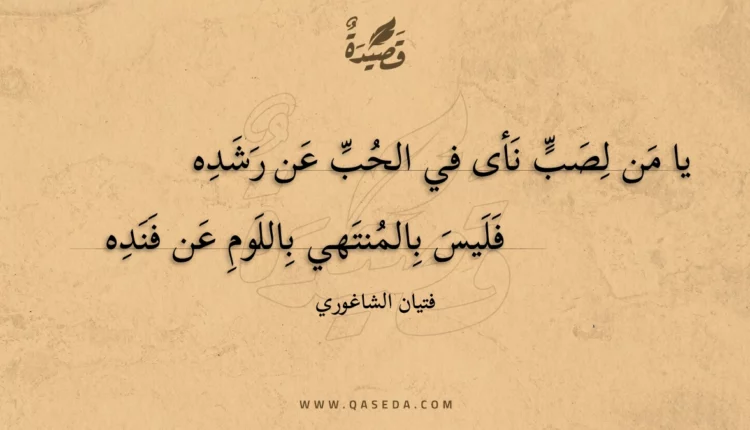 قَصِيْدَةٌ
يا مَن لِصَبٍّ نَأى في الحُبِّ عَن رَشَدِه
فَلَيسَ بِالمُنتَهي بِاللَومِ عَن فَنَدِه
فتيان الشاغوري
WWW.QASEDA.COM